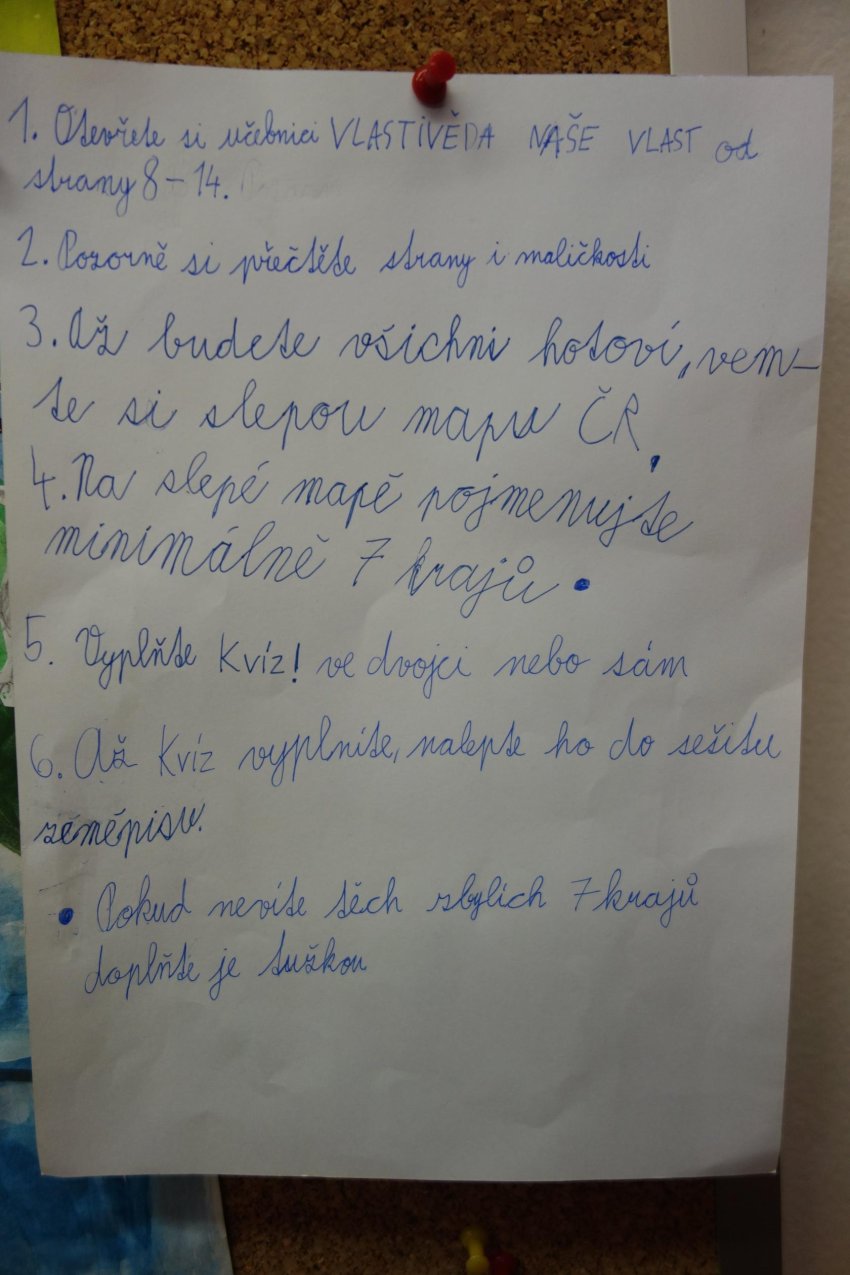 1. Otevřete si učebnici VLASTIVĚDA NAŠE VLAST od
strany 8-14.
2. Pozorně si přečtěte strany i maličkosti
3. Až budete všichni hotoví, vem-
te si slepou mapu ČR.
4. Na slepé mapě pojmenujte
minimálně 7 krajů.
5. Vyplňte Kvíz! ve dvojci nebo sám
6. Až Kvíz vyplníte, nalepte ho do sešitu
zeměpisu.
• Pokud nevíte těch zbylích 7 krajů
doplňte je tužkou